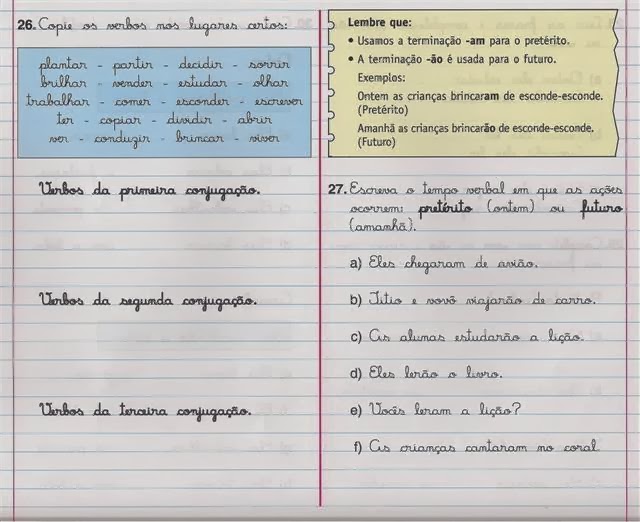 26. Copie os verbos nos lugares certos:
plantar - partir - decidir - sorrir
brilhar - vender - estudar - olhar
trabalhar - comer - esconder - escrever
ter - copiar - dividir - abrir
ver - conduzir - brincar - viver
Verbos da primeira conjugação.
Verbos da segunda conjugação.
Verbos da terceira conjugação.
Lembre que:
• Usamos a terminação -am para o pretérito.
• A terminação -ão é usada para o futuro.
Exemplos:
Ontem as crianças brincaram de esconde-esconde.
(Pretérito)
Amanhã as crianças brincarão de esconde-esconde.
(Futuro)
27. Escreva o tempo verbal em que as ações
ocorrem: pretérito (ontem) ou futuro
(amanhã).
a) Eles chegaram de avião.
b) Titio e vovô viajarão de carro.
c) As alunas estudarão a lição.
d) Eles lerão o livro.
e) Vocês leram a lição?
f) As crianças cantaram no coral